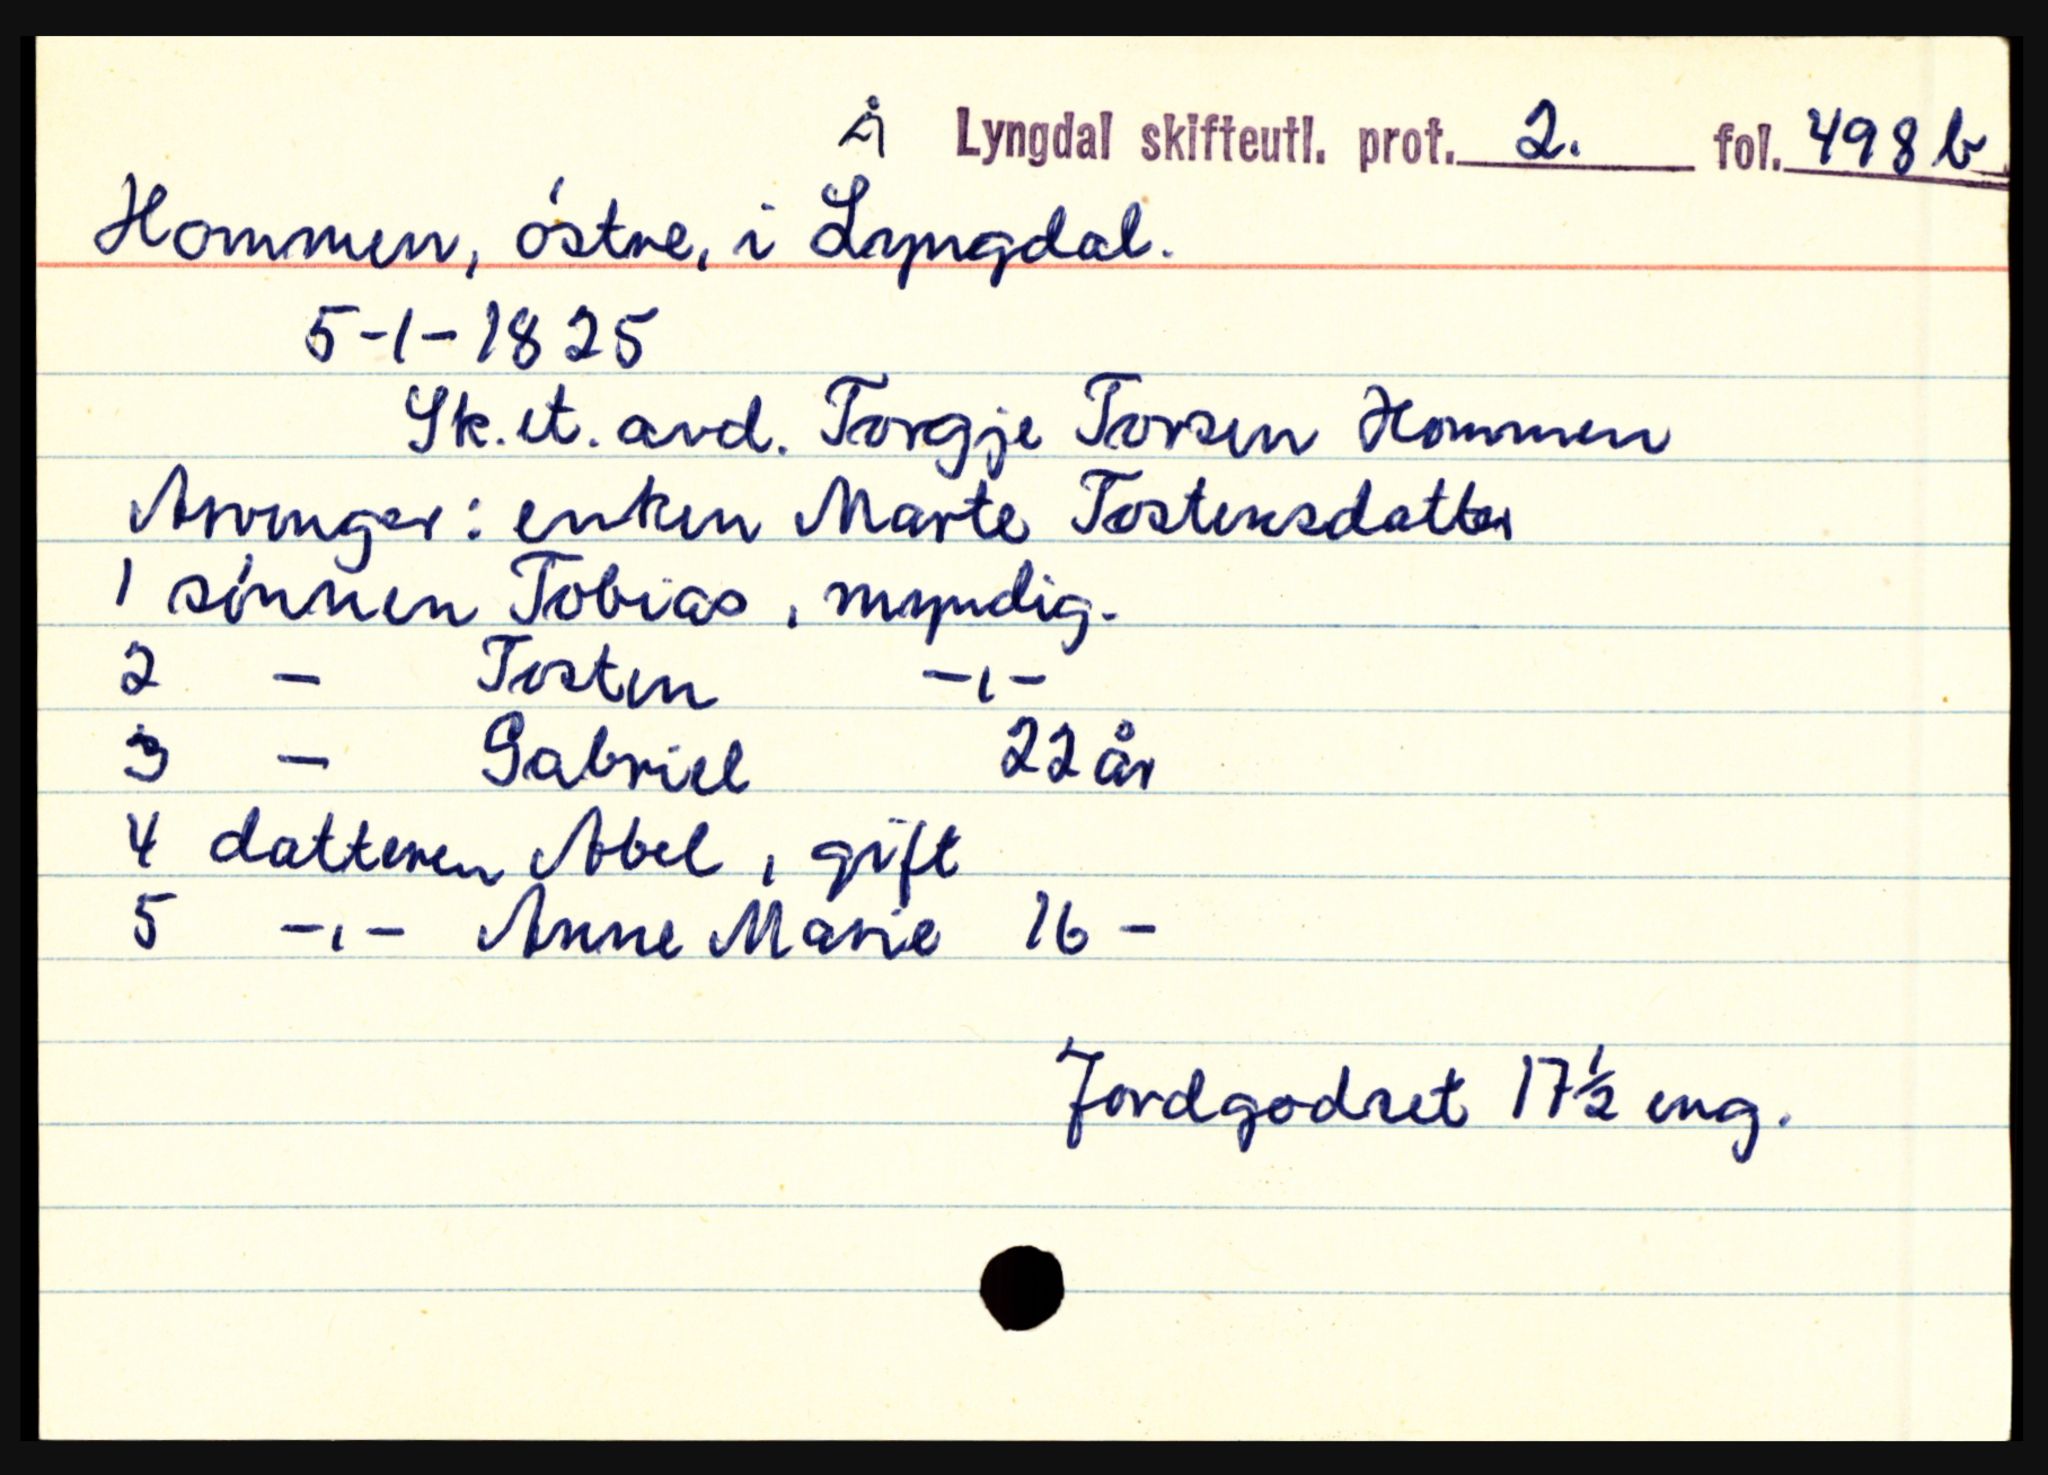 Å Lyngdal skifteutl. prot. 2. fol. 498 b
Hommen, østre, i Lyngdal.
5-1-1825
Sk. et. avd. Torgje Torsen Hommen
Arvinger: enken Marte Tostensdatter
1 sønnen Tobias, myndig.
2 - Tosten -ı-
3 - Gabriel 22 år
4 datteren Abel, gift
5 -ı- Anne Marie 16 -
Jordgodset 17½ eng.